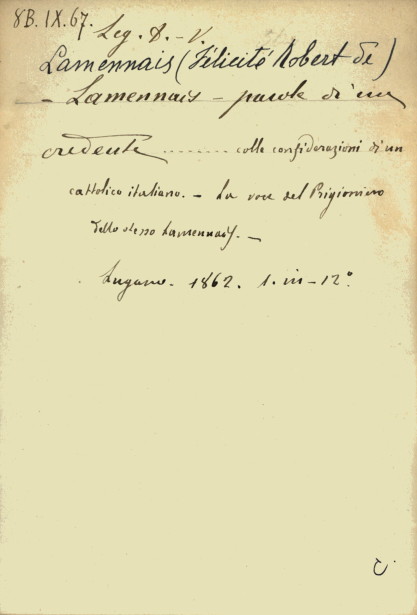 8B. IX. 67.
Leg. D. - V.
Lamennais (Félicité Robert de)
- Lamennais - parole di un
credente ......... colle considerazioni di un
cattolico italiano. - La voce del Prigioniero
dello stesso Lamennais. -
Lugano. 1862. 1. in - 12°.
C.